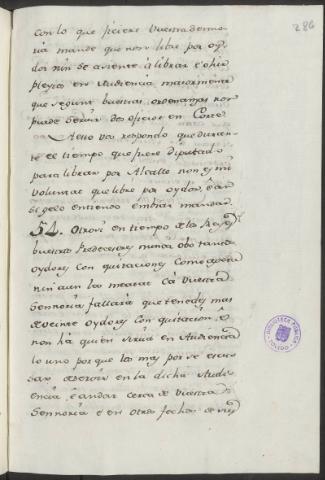 286
con lo que ficiere Vuestra Seño-
ria mande que non libre por oy-
dor nin se asiente à librar é ohir
pleyos en Audiencia maiormente
que segunt buestras ordenanzas non
puede servir dos oficios en Corte
A esto vos respondo que duran-
te el tiempo que fuere diputado
para librar por Alcalle non es mi
voluntat que libre por oydor, é an-
si gelo entiendo embiar mandar.
54. Otrosi en tiempo de los Reyes
buestros Predecesores nunca obo tantos
oydores con quitaciones como agora
nin aun las meatat cà Vuestra
Señoria fallará que tenedes mas
de veinte oydores con quitacion, é
non hà quien sirva en Audiencia
lo uno porque los mas por se escu-
sar de servir en la dicha Audi-
encia é andar cerca de Vuestra
Señoria é en otros fechos de su
BIBLIOTECA PUBLICA
TOLEDO